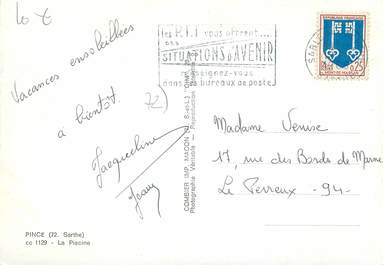 10 €
les P.T.T vous offrent...
des
SITUATIONS D'AVENIR
renseignez-vous
dans les bureaux de poste
RÉPUBLIQUE FRANÇAISE
0,25
MONT-DE-MARSAN
SABLÉ
Vacances ensoleillées
à bientôt.
72)
Jacqueline
COMBIER IMP. MACON (S.-et-L.) "CIM"
Photographie Véritable - Reproduction
Madame Venise
17, rue des Bords de Marne
Le Perreux - 94 -
PINCE (72. Sarthe)
cc 1129 - La Piscine